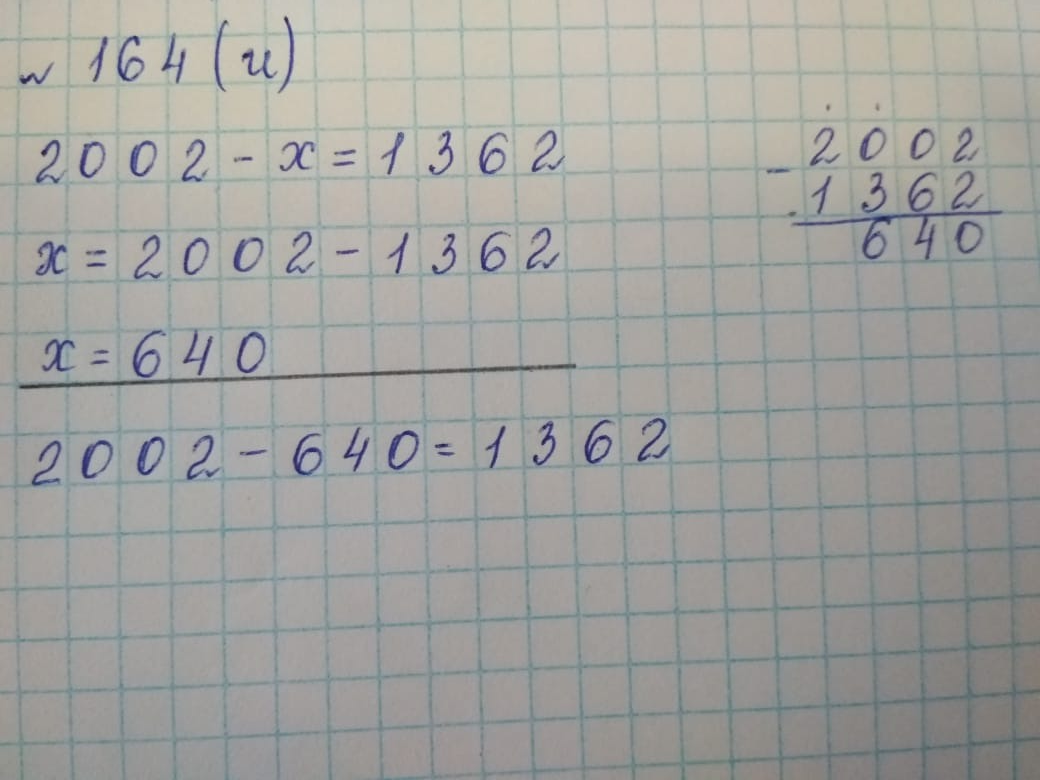 № 164 (и)
2002 - x = 1362
x = 2002 - 1362
x = 640
2002 - 640 = 1362
- 2002
1362
640